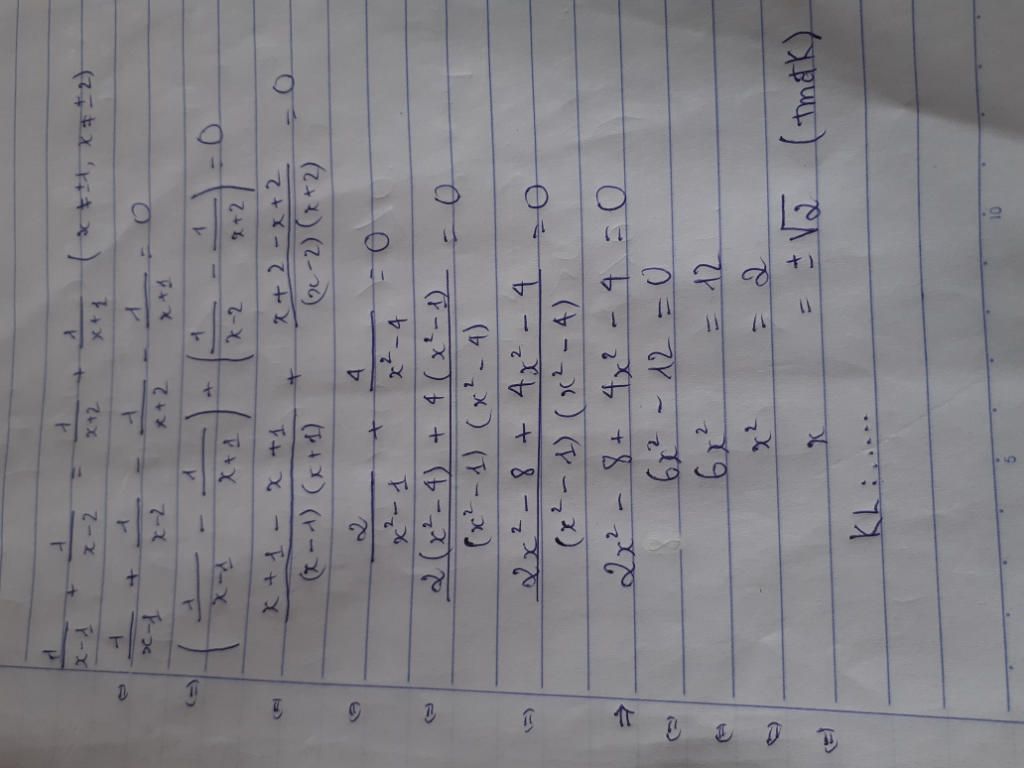 1/(x-1) + 1/(x-2) = 1/(x+2) + 1/(x+1) (x ≠ ±1, x ≠ ±2)
(=) 1/(x-1) + 1/(x-2) - 1/(x+2) - 1/(x+1) = 0
(=) (1/(x-1) - 1/(x+1)) + (1/(x-2) - 1/(x+2)) = 0
(=) (x+1-x+1)/((x-1)(x+1)) + (x+2-x+2)/((x-2)(x+2)) = 0
(=) 2/(x²-1) + 4/(x²-4) = 0
(=) (2(x²-4) + 4(x²-1))/((x²-1)(x²-4)) = 0
(=) (2x²-8 + 4x²-4)/((x²-1)(x²-4)) = 0
⇒ 2x² - 8 + 4x² - 4 = 0
(=) 6x² - 12 = 0
(=) 6x² = 12
(=) x² = 2
(=) x = ±√2 (tmđk)
KL:......
5
10